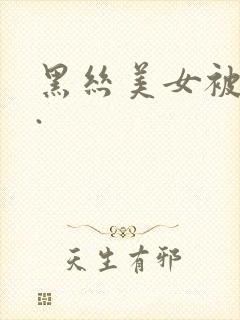 黑丝美女被
.
天生有邪